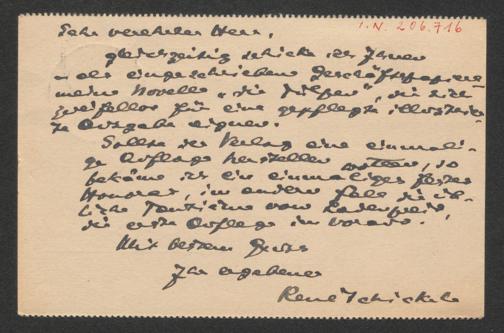 I.N. 206.716
Sehr verehrter Herr,
gleichzeitig schicke ich Ihnen
– als eingeschrieben Geschäftspapiere –
meine Novelle „Die Tulpen“, die sich
zweifellos für eine gepflegte illustrier-
te Ausgabe eignen.
Sollte der Verlag eine einmali-
ge Auflage herstellen wollen, so
bekäme ich ein einmaliges festes
Honorar, im andern Falle die üb-
liche Tantieme vom Ladenpreis,
die erste Auflage im voraus.
Mit bestem Gruss
Ihr ergebener
René Schickele